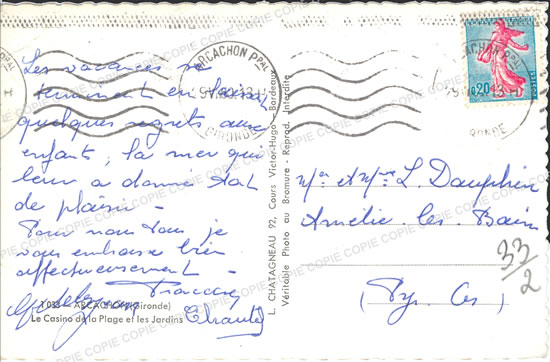 Les vacances se
terminent en laissant
quelques regrets, aux
enfants, la mer qui
leur a donné tant
de plaisir -
Pour nous tous je
vous embrasse bien
affectueusement -
1033 - ARCACHON (Gironde)
Le Casino de la Plage et les Jardins
L. CHATAGNEAU 92, Cours Victor-Hugo - Bordeaux
Véritable Photo au Bromure - Reprod. Interdite
ARCACHON PPAL
GIRONDE
0,20
POSTES
Mr et Mme L. Dauphin
Amélie les Bains
(Pyr. Or)
33/2
COPIE COPIE COPIE COPIE